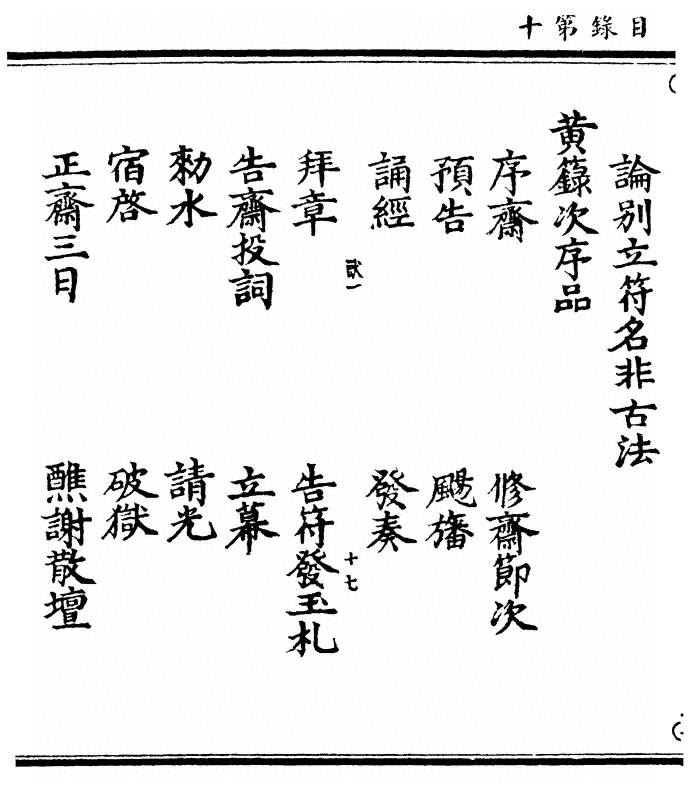 目錄第十
論別立符名非古法
黄籙次序品
序齋 修齋節次
預告 颺旛
誦經 發奏
貳一 十七
拜章 告符發玉札
告齋投詞 立幕
勑水 請光
宿啓 破獄
正齋三日 醮謝散壇